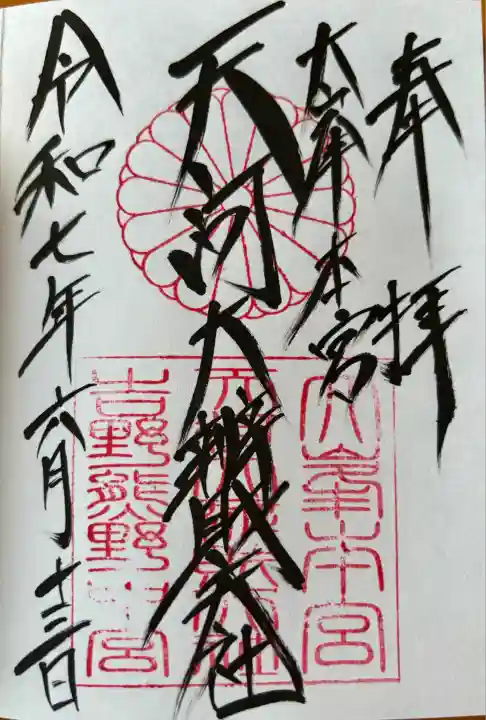 奉拝
大峯本宮
天河大辨財天社
令和七年六月十三日
大峯本宮
吉野熊野中宮